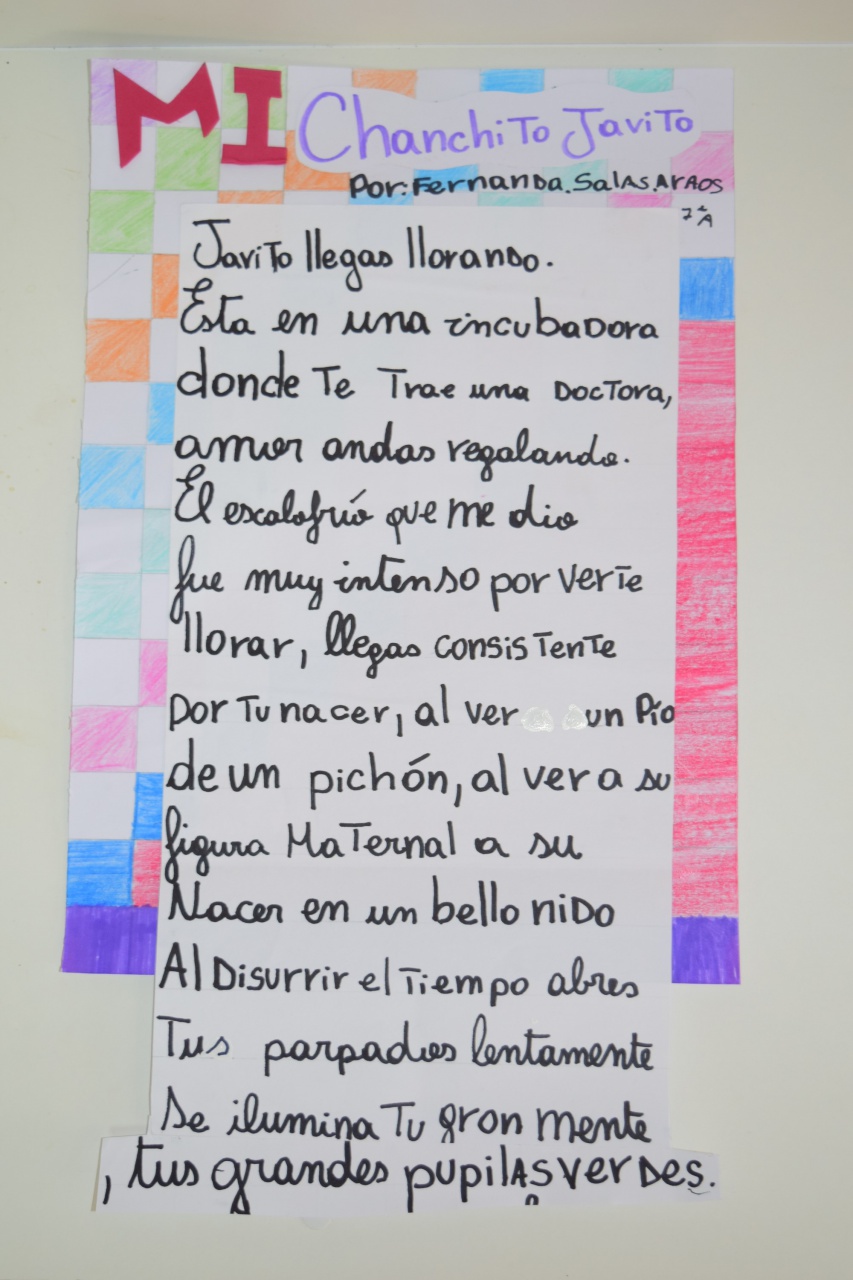 MI Chanchito Javito
Por: Fernanda. Salas. Araos
7°A
Javito llegas llorando.
Esta en una incubadora
donde Te Trae una Doctora,
amor andas regalando.
El escalofrío que me dio
fue muy intenso por verte
llorar, llegas consistente
por Tu nacer, al ver un Pío
de un pichón, al ver a su
figura Maternal a su
Nacer en un bello nido
Al Disurrir el Tiempo abres
Tus parpados lentamente
Se ilumina Tu gran mente
, tus grandes pupilas verdes.